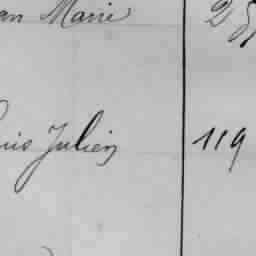 an Marie
uis Julien 119